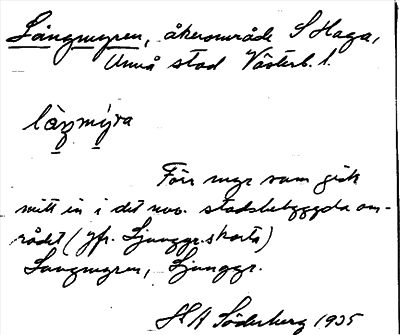 Långmyren, åkerområde S Haga,
Umeå stad Västerb. l.
làŋmy̆ra
Förr myr som gick
mitt in i det nuv. stadsbebyggda om-
rådet (jfr. Ljunggr. skarta)
Langmyren, Ljunggr.
HA Söderberg 1935